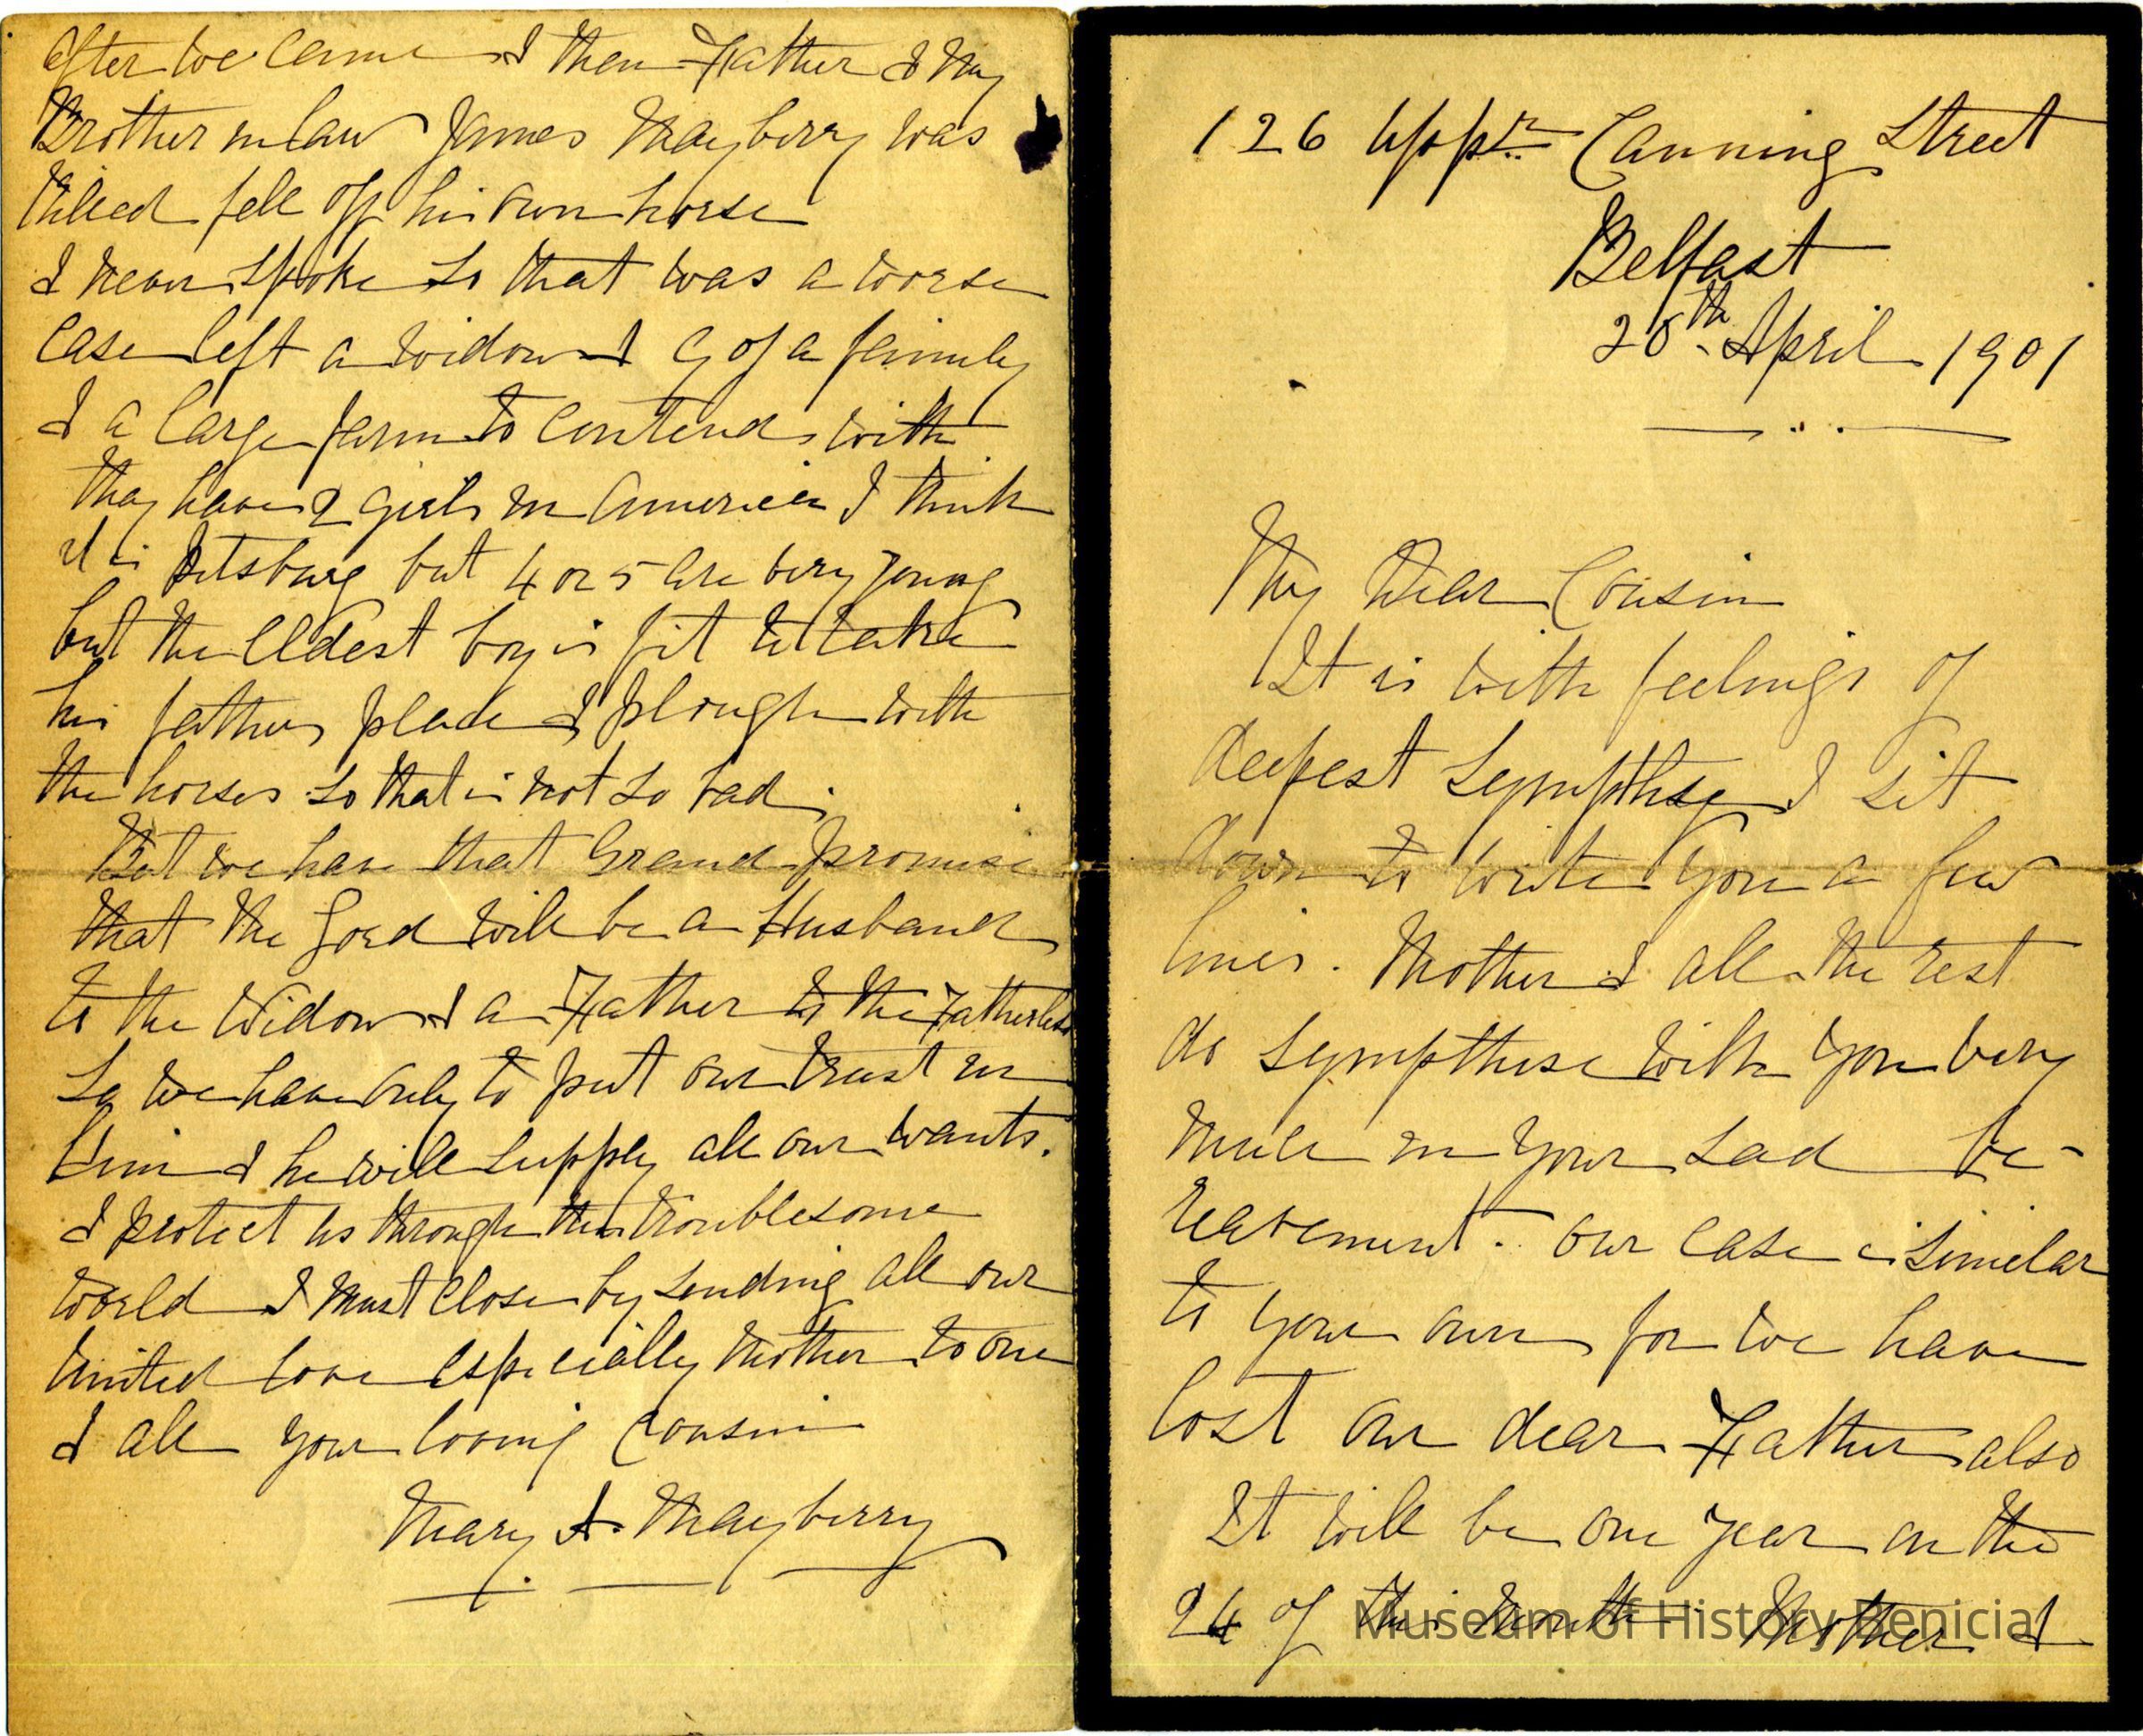 126 Uppr. Canning Street
Belfast
20th April 1901
My Dear Cousin
It is with feelings of
deepest Sympthsy I sit
down to write you a few
lines. Mother & all the rest
do sympthise with you very
much in your sad be-
reavement. Our case is similar
to your own for we have
lost our dear Father also
It will be one year on the
24 of this Month Mother &
after we came & then Father & My
Brother in law James Mayberry was
killed fell off his own horse
& never spoke so that was a worse
case left a widow & 9 of a family
& a large farm to contend with
they have 2 girls in America I think
it is Pitsburg but 4 or 5 are very young
but the Eldest boy is fit to take
his fathers place & plough with
the horses so that is not so bad.
But we have that Grand promise
that the Lord will be a Husband
to the Widow & a Father to the Fatherless
So we have only to put our trust in
him & he will supply all our wants.
& protect us through this troublesome
world I must close by sending all our
United love especially Mother to one
& all your loving Cousin
Mary A. Mayberry
Museum of History Benicia